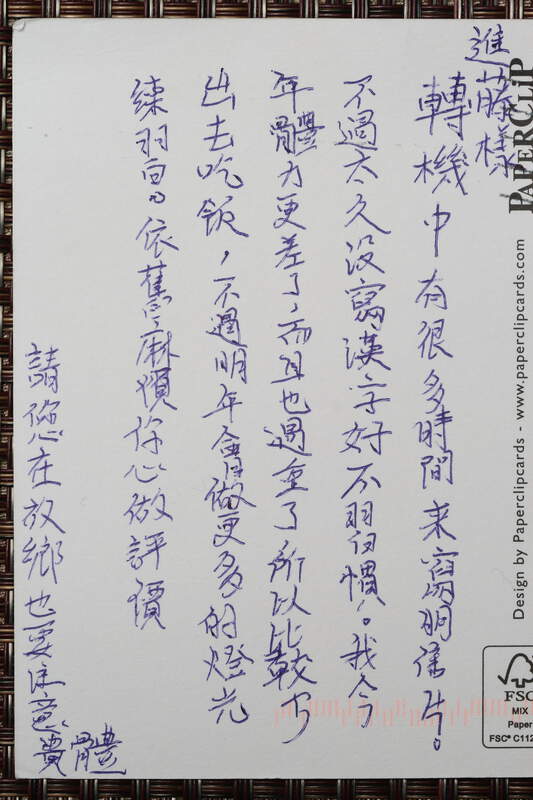 進藤樣
轉機中有很多時間来寫明信片。
不過太久沒寫漢字好不習慣。我今
年體力更差了,而且也過重了所以比較少
出去吃飯,不過明年會做更多的燈光
練習。依舊麻煩您做評價
請您在故鄉也要注意貴體
PAPERCLIP
Design by Paperclipcards - www.paperclipcards.com
FSC
MIX
Paper
FSC® C112